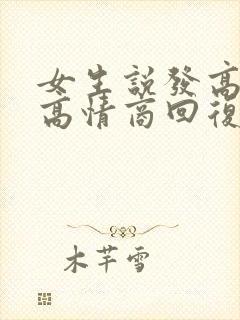 女生說發高
高情商回復
木芊雪